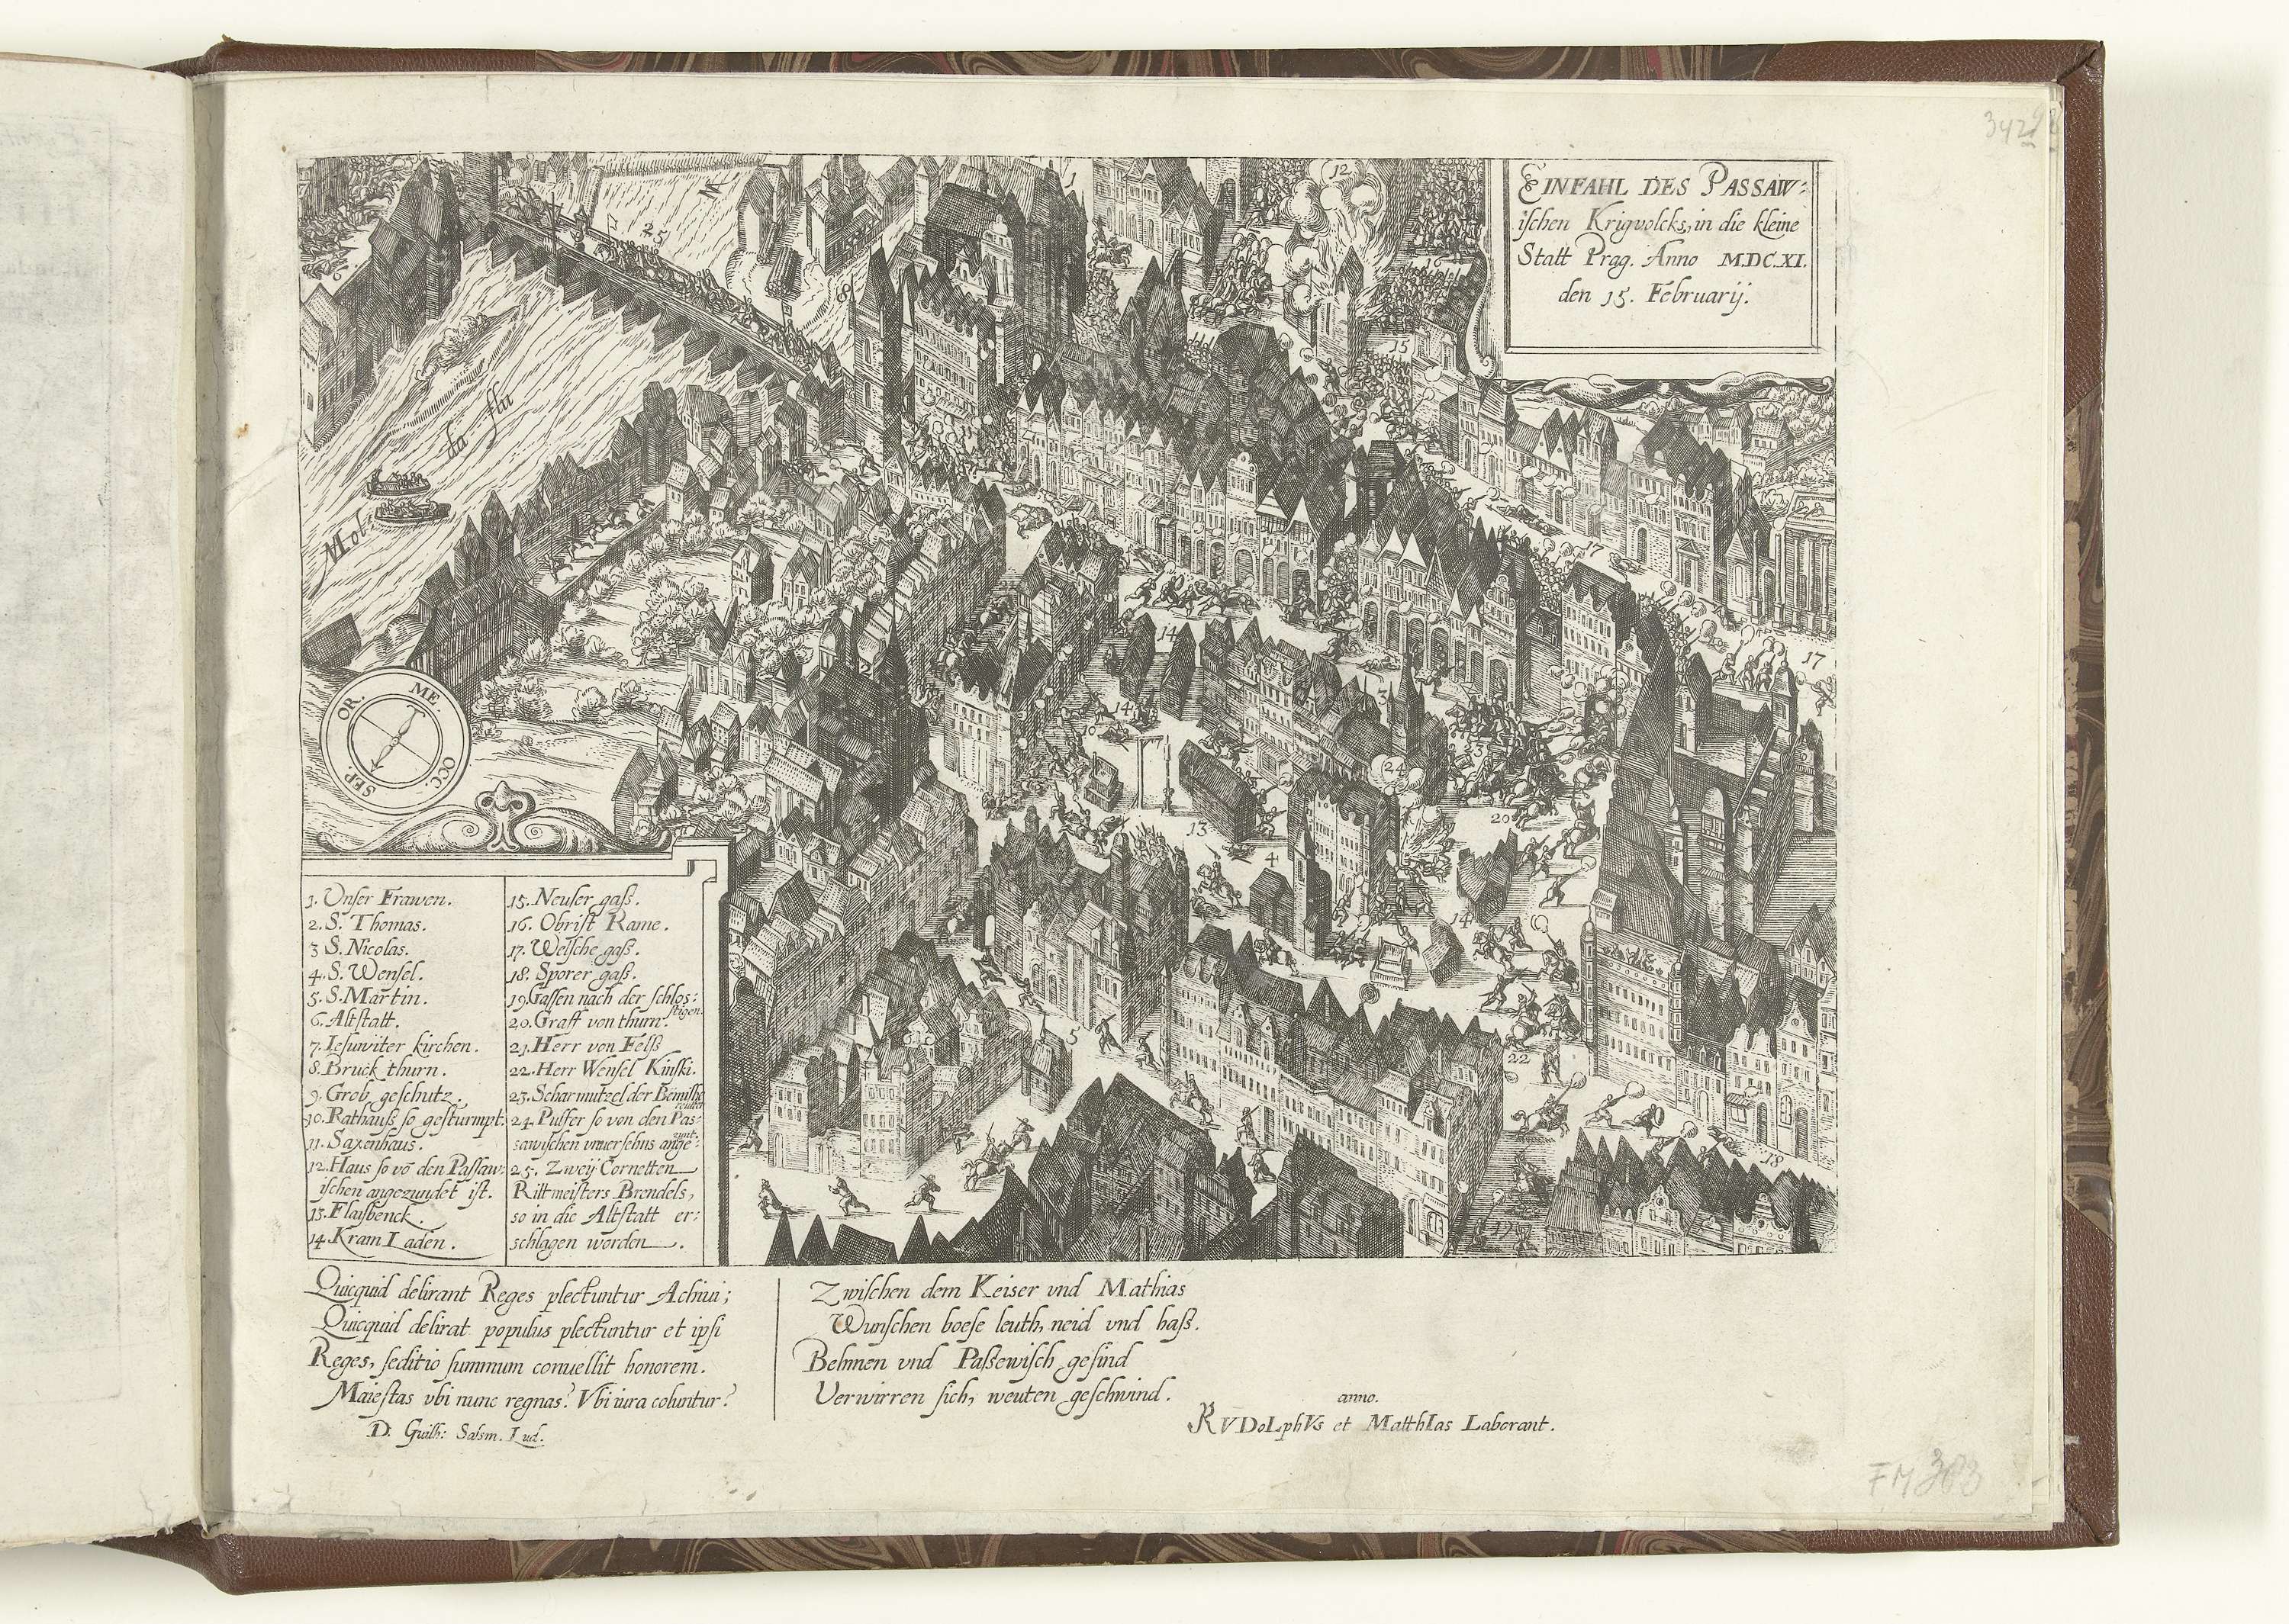 3429
EINFAHL DES PASSAW-
ischen Krigvolcks, in die kleine
Statt Prag. Anno M.DC.XI.
den 15. Februarij.
12
25
16
8
15
da flu
Mol
17
14
17
14
10
3
24
23
13
20
4
14
5
22
18
19
ME.
OR.
OCC.
SEP.
1. Unser Frawen.
2. S. Thomas.
3 S. Nicolas.
4. S. Wensel.
5. S. Martin.
6. Altstatt.
7. Iesuwiter kirchen.
8. Bruck thurn.
9. Grob geschutz.
10. Rathauß so gesturmpt.
11. Saxenhaus.
12. Haus so vō den Passaw-
ischen angezundet ist.
13. Flaisbenck.
14. Kram Laden.
15. Neuser gaß.
16. Obrist Rame.
17. Welsche gaß.
18. Sporer gaß.
19. Gassen nach der schlos:
stigen.
20. Graff von thurn.
21. Herr von Felß
22. Herr Wensel Kinski.
23. Scharmutzel der Bëmische
reuter
24. Pulfer so von den Pas-
sawischen vnuersehns ange:
zunt.
25. Zweij Cornetten
Rittmeisters Brendels,
so in die Altstatt er:
schlagen worden.
Quicquid delirant Reges plectuntur Achiui;
Quicquid delirat populus plectuntur et ipsi
Reges, seditio summum conuellit honorem.
Maiestas vbi nunc regnas? Vbi iura coluntur?
D. Guilh: Salsm. Lud.
Zwischen dem Keiser vnd Mathias
Wunschen boese leuth, neid vnd haß.
Behmen vnd Paßewisch gesind
Verwirren sich, weuten geschwind.
anno.
RVDoLphVs et MatthIas Laborant.
FM 303